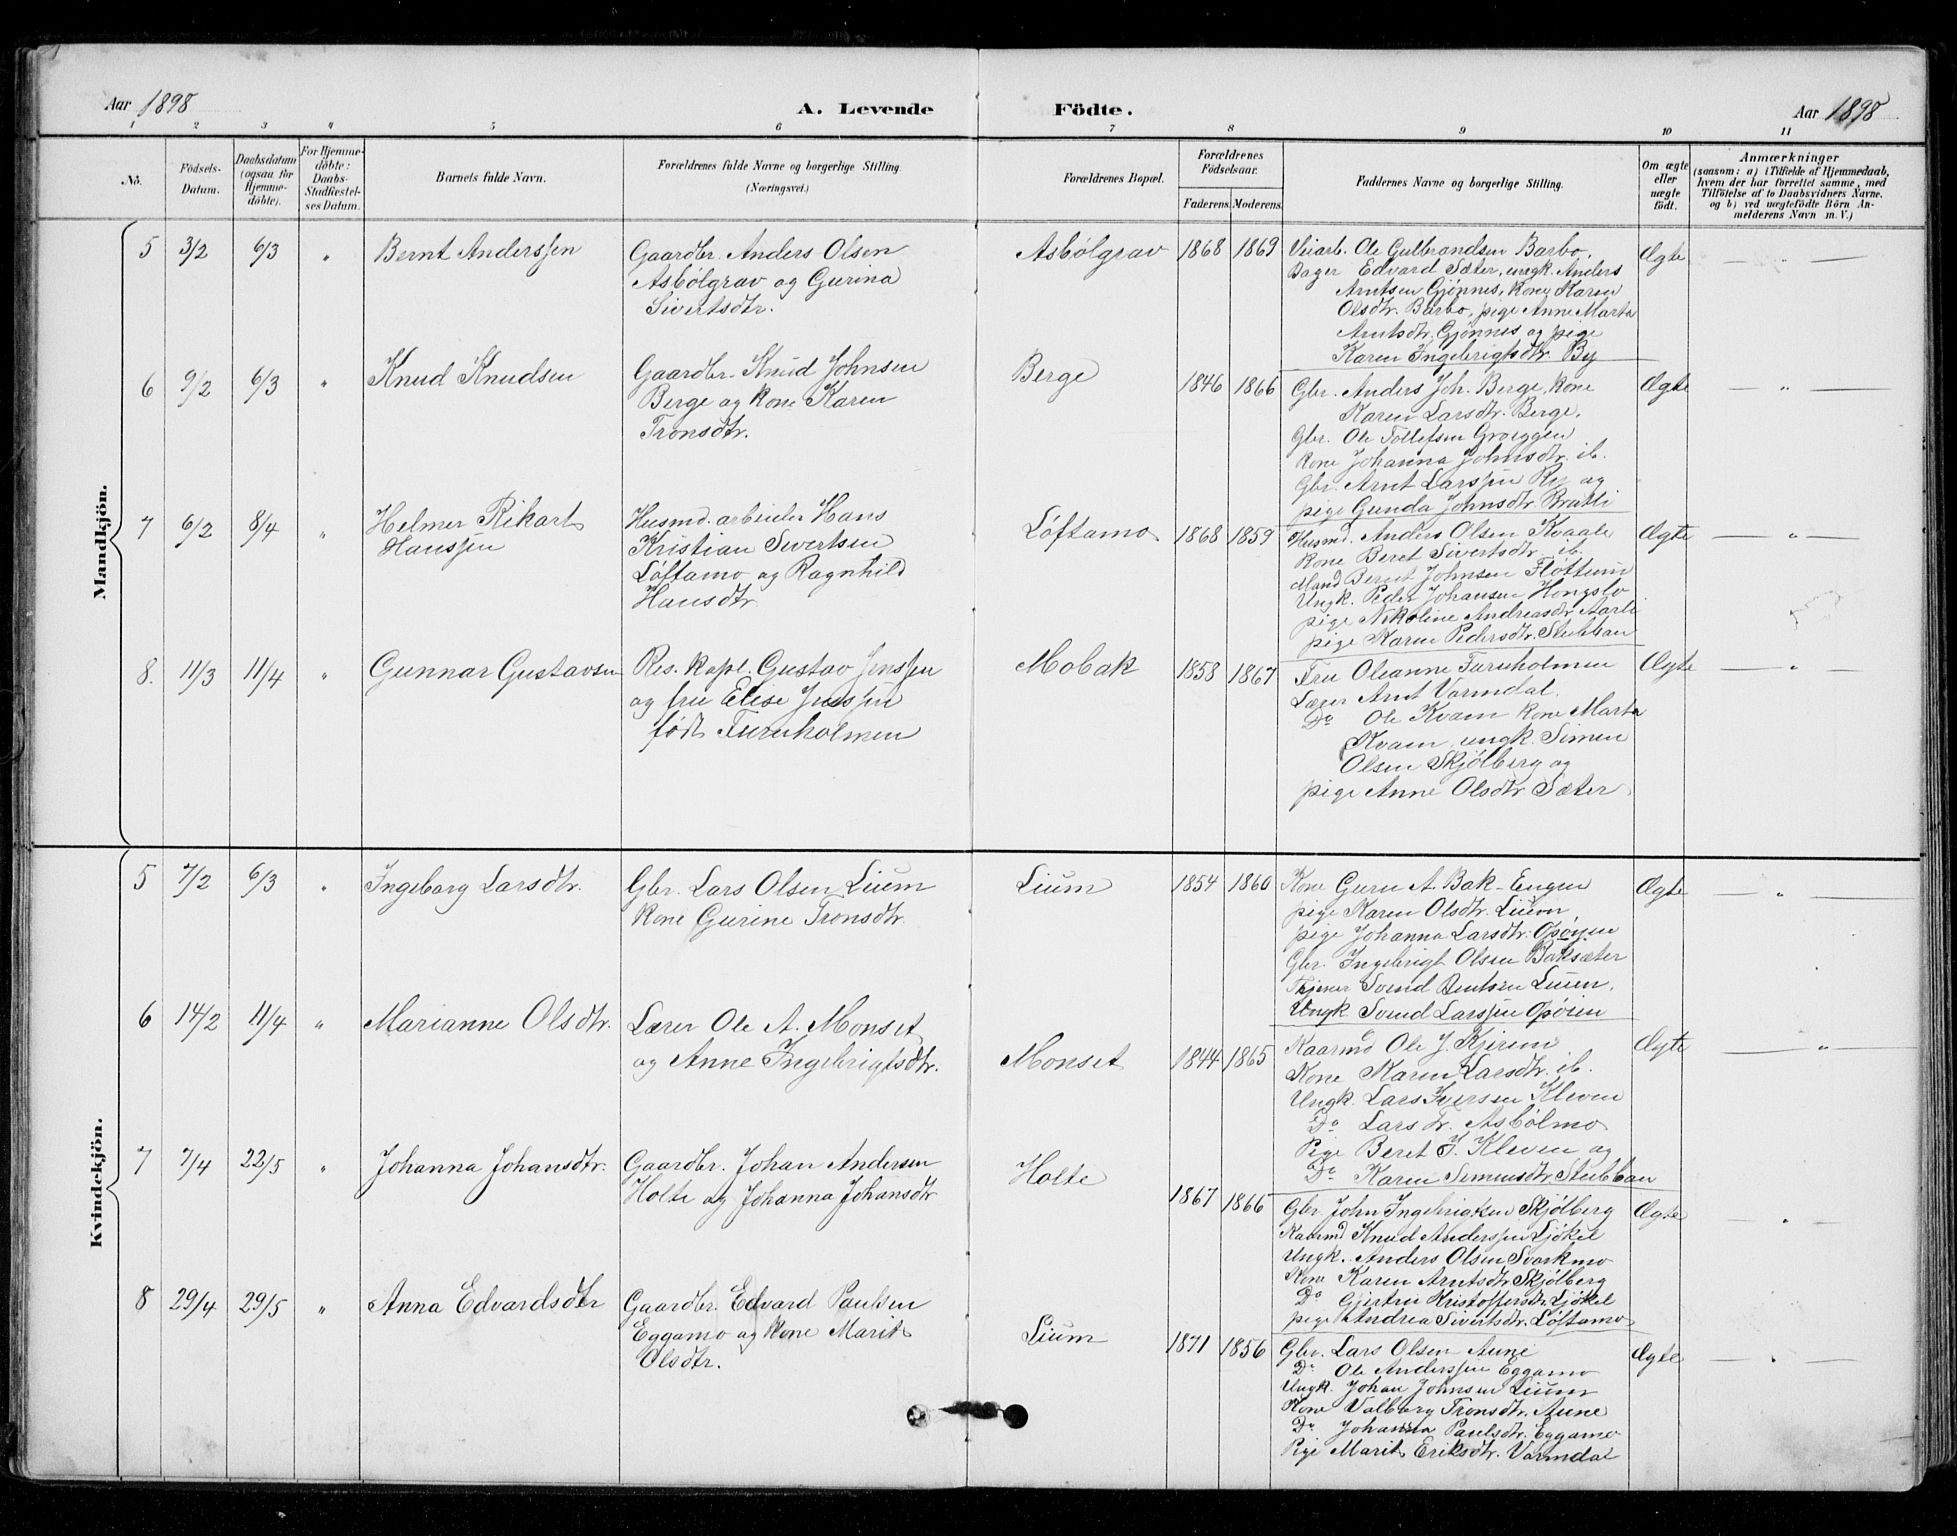 Aar 1898 A. Levende Födte. Aar 1898
1 2 3 4 5 6 7 8 9 10 11
No. Födsels-Datum. Daabsdatum (ogsaa for Hjemmedöbte). For Hjemmedöbte: Daabs-Stadfæstelses Datum. Barnets fulde Navn. Forældrenes fulde Navne og borgerlige Stilling. (Næringsvei.) Forældrenes Bopæl. Forældrenes Födselsaar. Faderens. Moderens. Faddernes Navne og borgerlige Stilling. Om ægte eller uægte födt. Anmærkninger (saasom: a) i Tilfælde af Hjemmedaab, hvem der har forrettet samme, med Tilföielse af to Daabsvidners Navne, og b) ved uægtefödte Börn Anmelderens Navn m. V.)
Mandkjön.
5 3/2 6/3 " Bernt Anderssen
Gaardbr. Anders Olsen
Asbölgrav og Gurina
Sivertsdtr.
Asbölgrav 1868 1869
Veiarb. Ole Gulbrandsen Barbo,
Bager Edvard Sæter, ungk. Anders
Arntsen Gjønnes, Kone Karen
Olsdtr. Barbo, pige Anne Marta
Arntsdtr. Gjønnes og pige
Karen Ingebrigtsdtr. By
Ægte — " —
6 9/2 6/3 " Knud Knudsen
Gaardbr. Knud Johnsen
Berge og kone Karen
Tronsdtr.
Berge 1846 1866
Gbr. Anders Joh. Berge, kone
Karen Larsdtr. Berge,
Gbr. Ole Tollefsen
Kone Johanna Johnsdtr. ib.
Gbr. Arnt Larssen Ry og
pige Gunda Johnsdtr. Bratli
Ægte — " —
7 6/2 8/4 " Helmer Rikart
Hanssen
Husmd. arbeider Hans
Kristian Sivertsen
Löftamo og Ragnhild
Hansdtr.
Löftamo 1868 1859
Husmd. Anders Olsen Kvaale
kone Beret Sivertsdtr. ib.
Bernt Johnsen Fløttum
Ungk. Peder Johansen Hongslo
pige Nikoline Andreasdtr. Aarli
pige Karen Pedersdtr. Stubban
Ægte — " —
8. 11/3 11/4 " Gunnar Gustavsen
Res. kapl. Gustav Jenssen
og fru Elise Jenssen
født Furuholmen
Mobak 1858 1867
Fru Oleanne Furuholmen
Lærer Arnt Varmdal.
Do Ole Kvam kone Marta
Kvam, ungk. Simen
Olsen Skjölberg og
pige Anne Olsdtr. Sæter
Ægte — " —
Kvindekjön.
5 7/2 6/3 " Ingeborg Larsdtr.
Gbr. Lars Olsen Lium
kone Gurine Tronsdtr.
Lium 1854 1860
Kone Guru A. Bak-Engen
pige Karen Olsdtr. Lium,
pige Johanna Larsdtr. Opøyen
Gbr. Ingebrigt Olsen Baksæter
Svend Lium,
Ungk Svend Larssen Opöien
Ægte — " —
6 14/2 11/4 " Marianne Olsdtr.
Lærer Ole A. Monset
og Anne Ingebrigtsdtr.
Monset 1844 1865
Kaarmd Ole J. Kjiren
Kone Karen Larsdtr. ib.
Ungk. Lars Iverssen Kleven
Do Lars Tr. Asbölmo
Pige Beret I. Kleven og
Do Karen Simensdtr. Stubban
Ægte — " —
7 7/4 22/5 " Johanna Johansdtr.
Gaardbr. Johan Andersen
Holte og Johanna Johansdtr
Holte 1867 1866
Gbr. John Ingebrigtsen Skjölberg
Kaarmd Knud Anderssen Ljökel
Ungk. Anders Olsen Svarkmo
Kone Karen Arntsdtr. Skjölberg
Do Gjertru Kristoffersdtr. Ljökel
pige Andrea Sivertsdtr. Löftamo
Ægte — " —
8 29/4 29/5 " Anna Edvardsdtr
Gaardbr. Edvard Paulsen
Eggamo og kone Marit
Olsdtr.
Lium 1871 1856
Gbr. Lars Olsen Aune
Do Ole Anderssen Eggamo
Ungk. Johan Johnsen Lium
Kone Valborg Tronsdtr. Aune
Do Johanna Paulsdtr. Eggamo
Pige Marit Eriksdtr. Varmdal
Ægte — " —